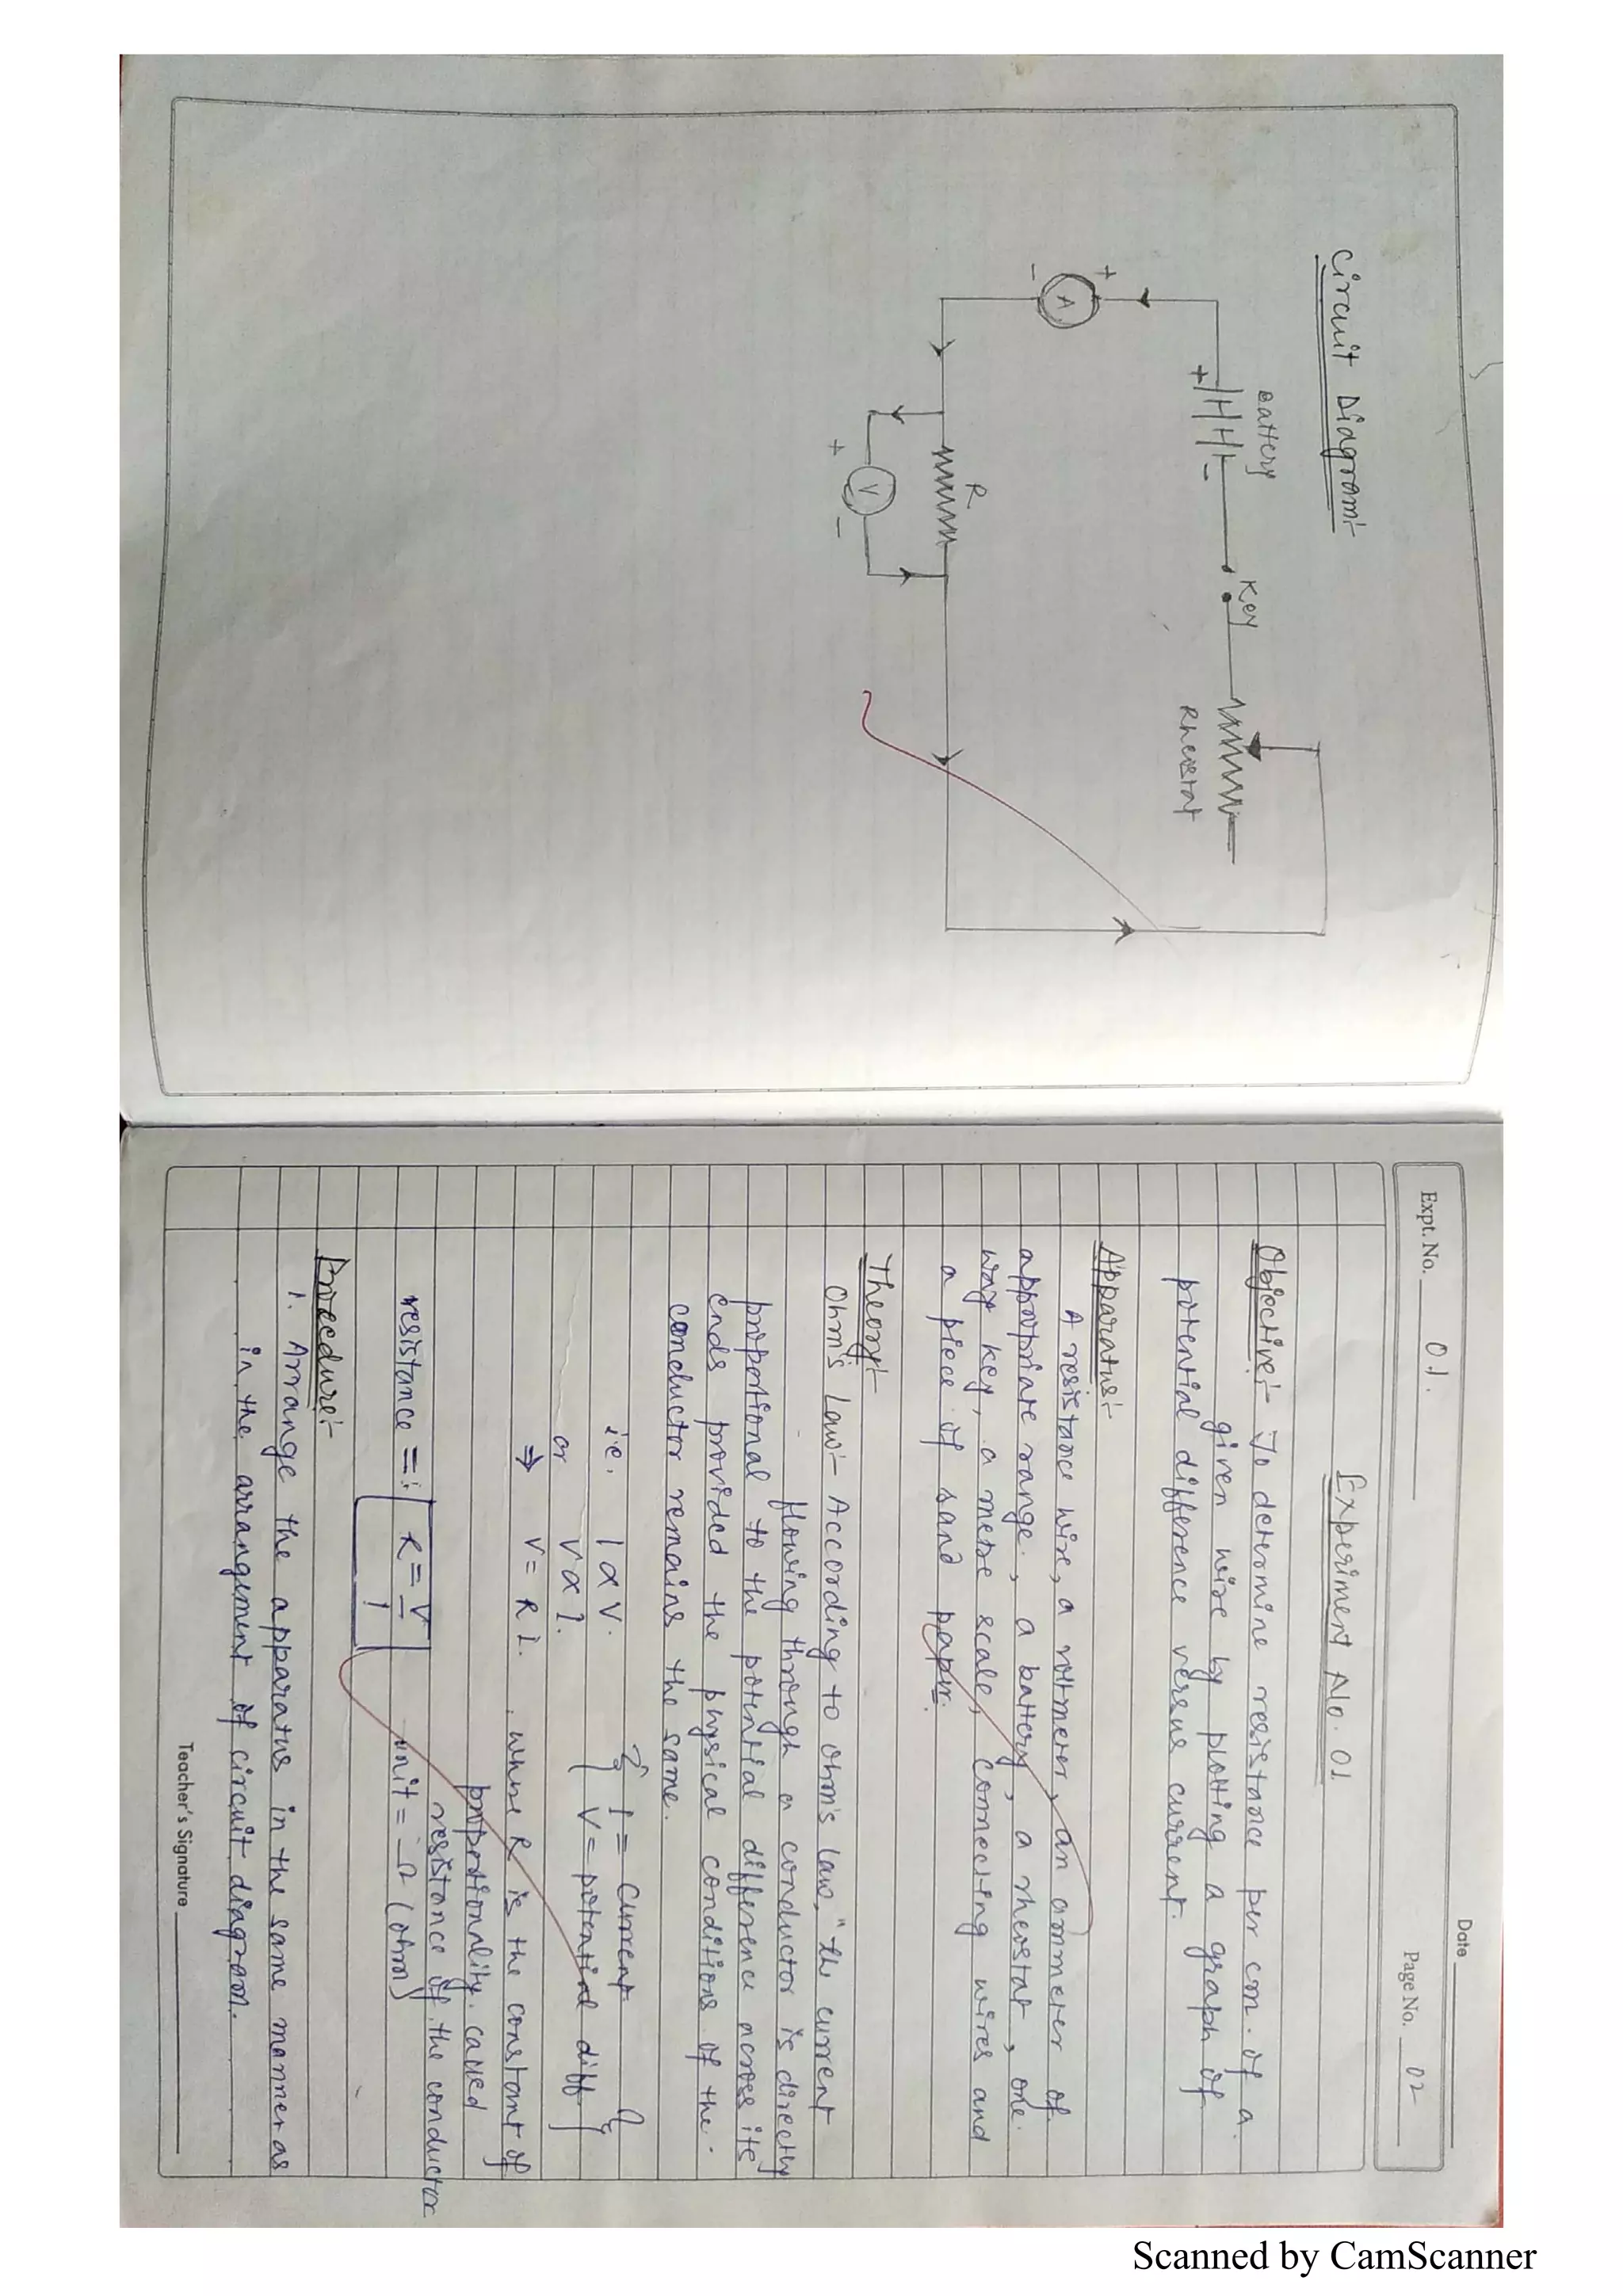 Circuit Diagram:-
Battery
Key
+
-
Rheostat
+
A
-
R
V
+
-
Date
Expt. No. 01.
Page No. 02
Experiment No. 01
Objective:- To determine resistance per cm. of a
given wire by plotting a graph of
potential difference versus current.
Apparatus:-
A resistance wire, a voltmeter, an ammeter of
appropriate range., a battery, a rheostat, one
way key, a metre scale, connecting wires and
a piece of sand paper.
Theory:-
Ohm's law:- According to ohm's law, "the current
flowing through a conductor is directly
proportional to the potential difference across its
ends provided the physical conditions of the
conductor remains the same.
i.e. I α V.
{ I = current
or V α I.
V = potential diff }
⇒ V = R I. , where R is the constant of
proportionality. called
resistance of the conductor
resistance = R = V/I unit = Ω (ohm)
Procedure:-
1. Arrange the apparatus in the same manner as
in the arrangement of circuit diagram.
Teacher's Signature
Scanned by CamScanner